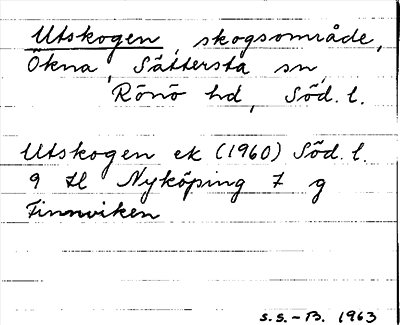 Utskogen, skogsområde,
Ökna, Sättersta sn,
Rönö hd, Söd. l.
Utskogen ek (1960) Söd. l.
9 H Nyköping 7 g
Finnviken
S.S.-B. 1963